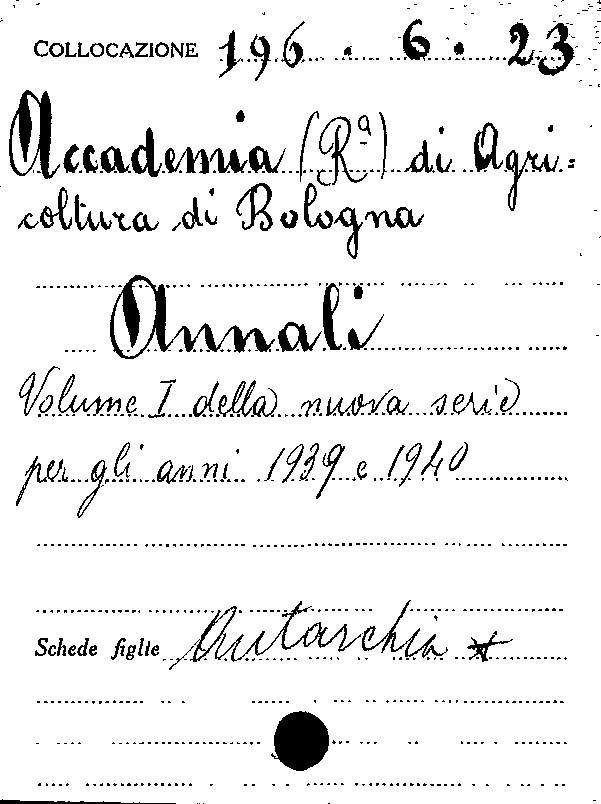 COLLOCAZIONE 196. 6. 23
Accademia (Rª) di Agri=
coltura di Bologna
Annali
Volume I della nuova serie
per gli anni 1939 e 1940
Schede figlie Autarchia *